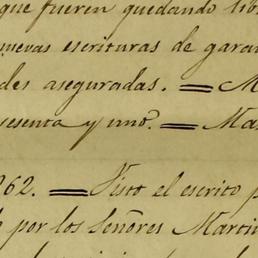 que fueren quedando lib
nuevas escrituras de gara
des aseguradas. = M
sesenta y uno. = Ma
862. = Visto el escrito p
por los Señores Martin